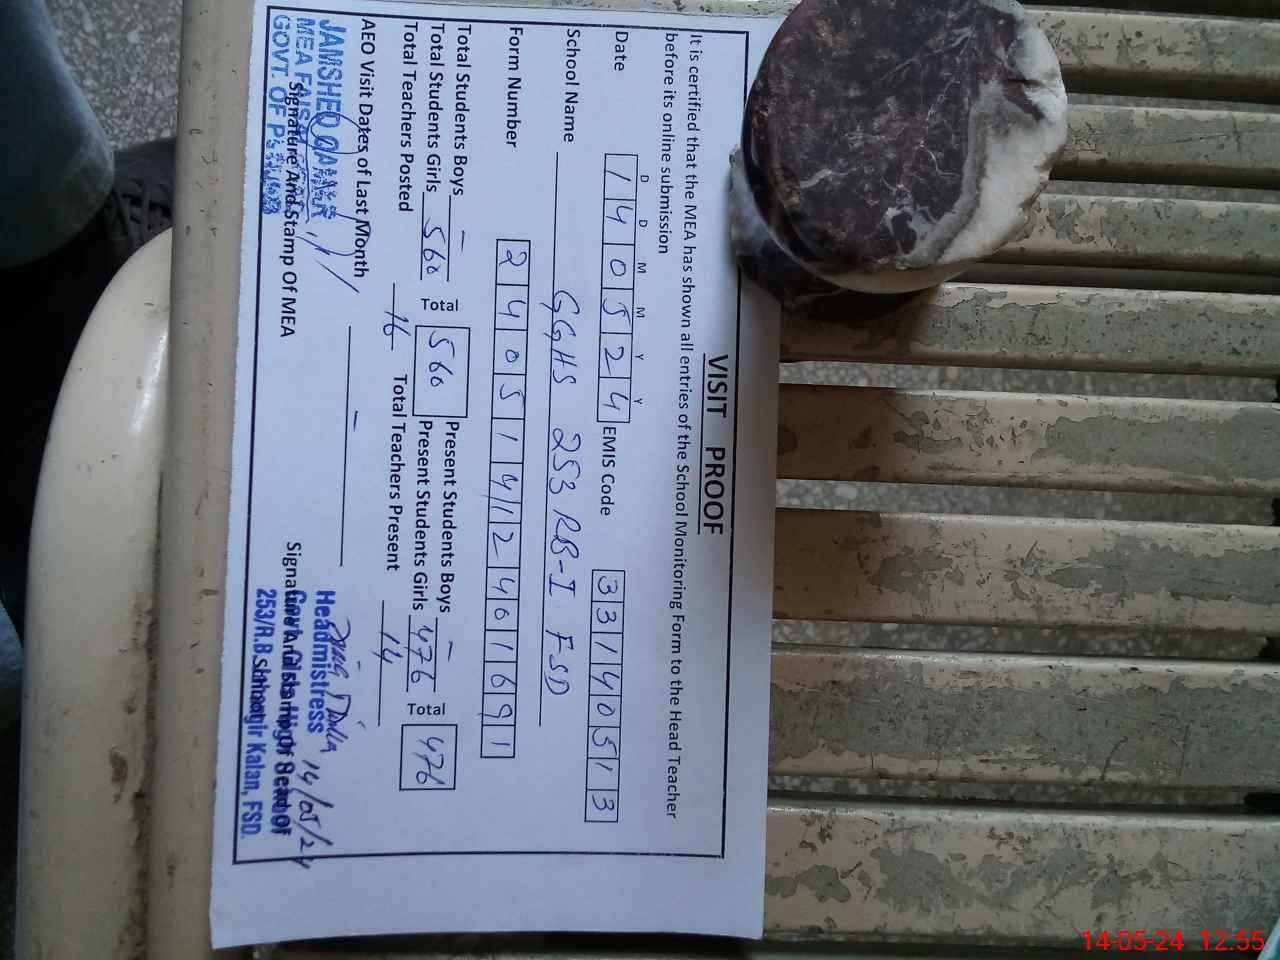 VISIT PROOF
It is certified that the MEA has shown all entries of the School Monitoring Form to the Head Teacher
before its online submission
D D M M Y Y
Date 1 4 0 5 2 4 EMIS Code 3 3 1 4 0 5 1 3
School Name GGHS 253 RB-I FSD
Form Number 2 4 0 5 1 4 1 2 4 0 1 6 9 1
Total Students Boys - Present Students Boys -
Total Students Girls 560 Total 560 Present Students Girls 476 Total 476
Total Teachers Posted 16 Total Teachers Present 14
AEO Visit Dates of Last Month -
JAMSHED
MEA FAISALABAD
GOVT. OF
Signature And Stamp Of MEA
14/05/24
Headmistress
Govt. Girls High School
253/R.B. Kalan, FSD.
Signature And Stamp Of Head
14-05-24 12:55